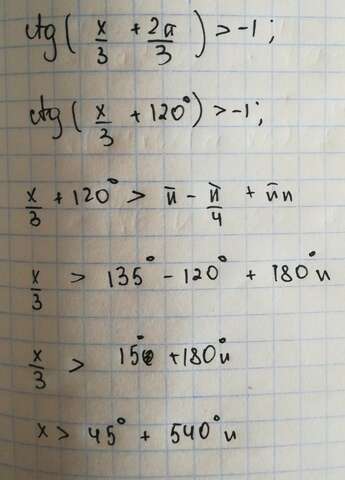 ctg( x/3 + 2π/3 ) > -1 ;
ctg( x/3 + 120° ) > -1 ;
x/3 + 120° > π - π/4 + πn
x/3 > 135° - 120° + 180°n
x/3 > 15° + 180°n
x > 45° + 540°n